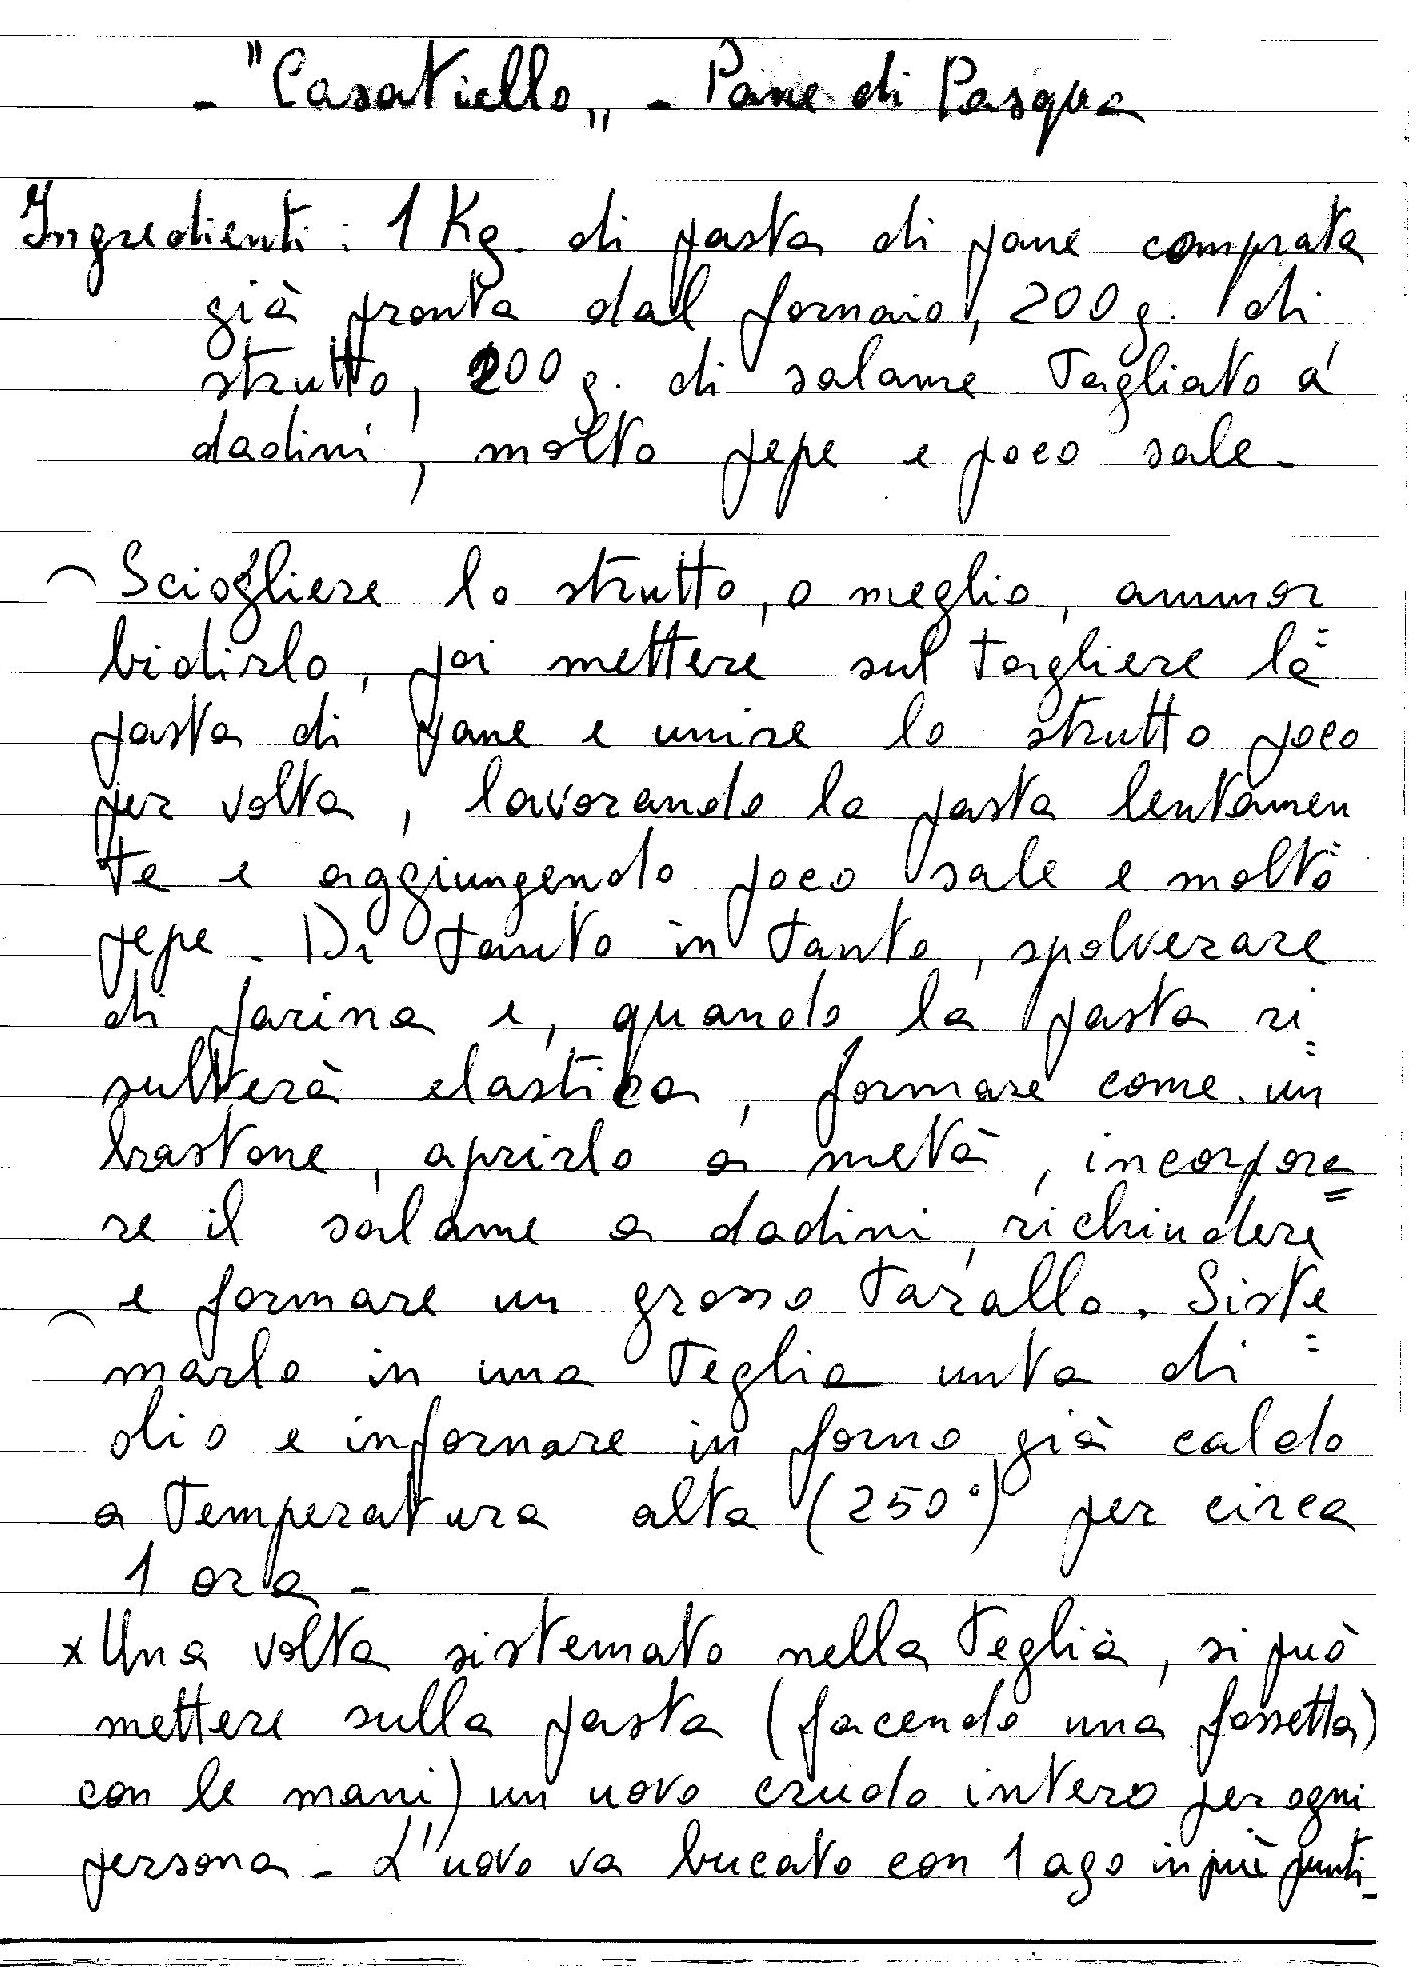 - "Casatiello„ - Pane di Pasqua
Ingredienti: 1 Kg. di pasta di pane comprata
già pronta dal fornaio, 200 g. di
strutto, 200 g. di salame tagliato a
dadini, molto pepe e poco sale.
Sciogliere lo strutto, o meglio, ammor=
bidirlo, poi mettere sul tagliere la
pasta di pane e unire lo strutto poco
per volta, lavorando la pasta lentamen=
te e aggiungendo poco sale e molto
pepe. Di tanto in tanto, spolverare
di farina e, quando la pasta ri=
sulterà elastica, formare come un
bastone, aprirlo a metà, incorpora=
re il salame a dadini, richiudere
e formare un grosso tarallo. Siste=
marlo in una teglia unta di
olio e infornare in forno già caldo
a temperatura alta (250°) per circa
1 ora -
x Una volta sistemato nella teglia, si può
mettere sulla pasta (facendo una fossetta)
con le mani) un uovo crudo intero per ogni
persona - L'uovo va bucato con 1 ago in più punti -